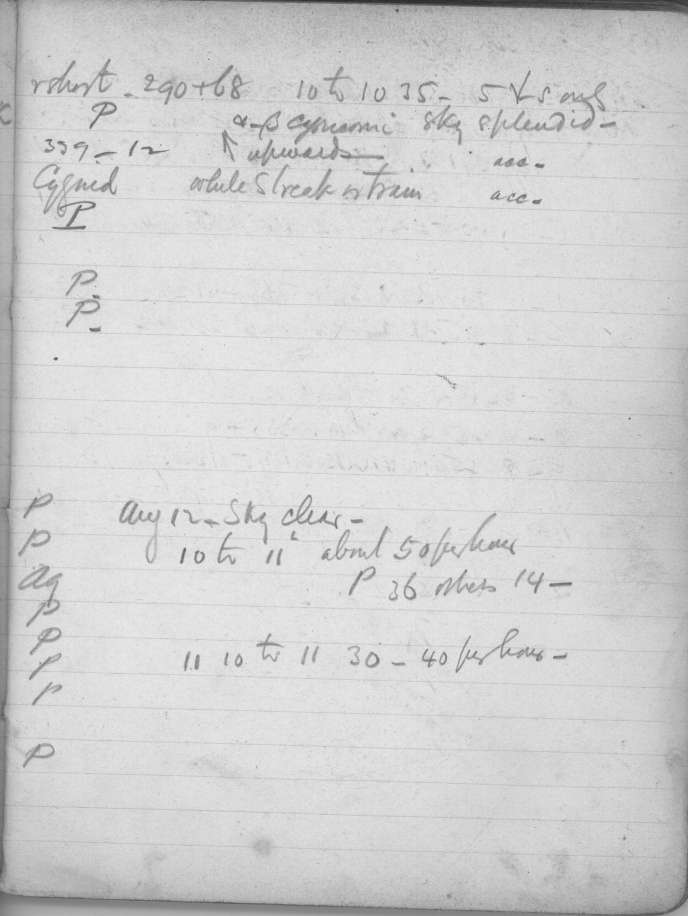 short - 290+68 10 to 10 35 - 5 *s only
P α-β Cygni sky splendid -
339 - 12 upwards acc -
Cygned while streak or train acc -
P
P.
P.
P Aug 12 - Sky clear -
P 10 to 11 about 50 per hour
Aq P 36 others 14 -
P
P
P 11 10 to 11 30 - 40 per hour -
P
P